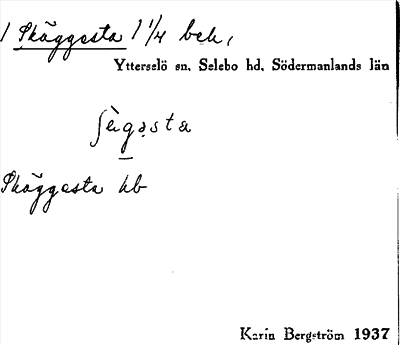 1 Skäggesta 1 1/4 beb.,
Ytterselö sn. Selebo hd. Södermanlands län
ʃὲgəsta
Skäggesta hb
Karin Bergström 1937